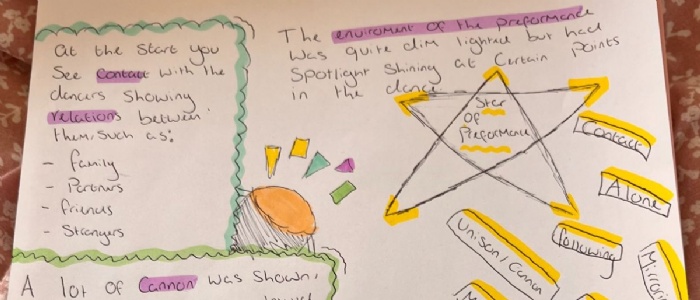 At the start you
see contact with the
dancers showing
relations between
them, such as:
- family
- Partners
- friends
- Strangers
A lot of Cannon was shown,
The enviroment of the preformance
was quite dim lighted but had
Spotlight shining at certain points
in the dance
Star
of
Preformance
Contact
Alone
following
Unison/Cannon
Mirroring